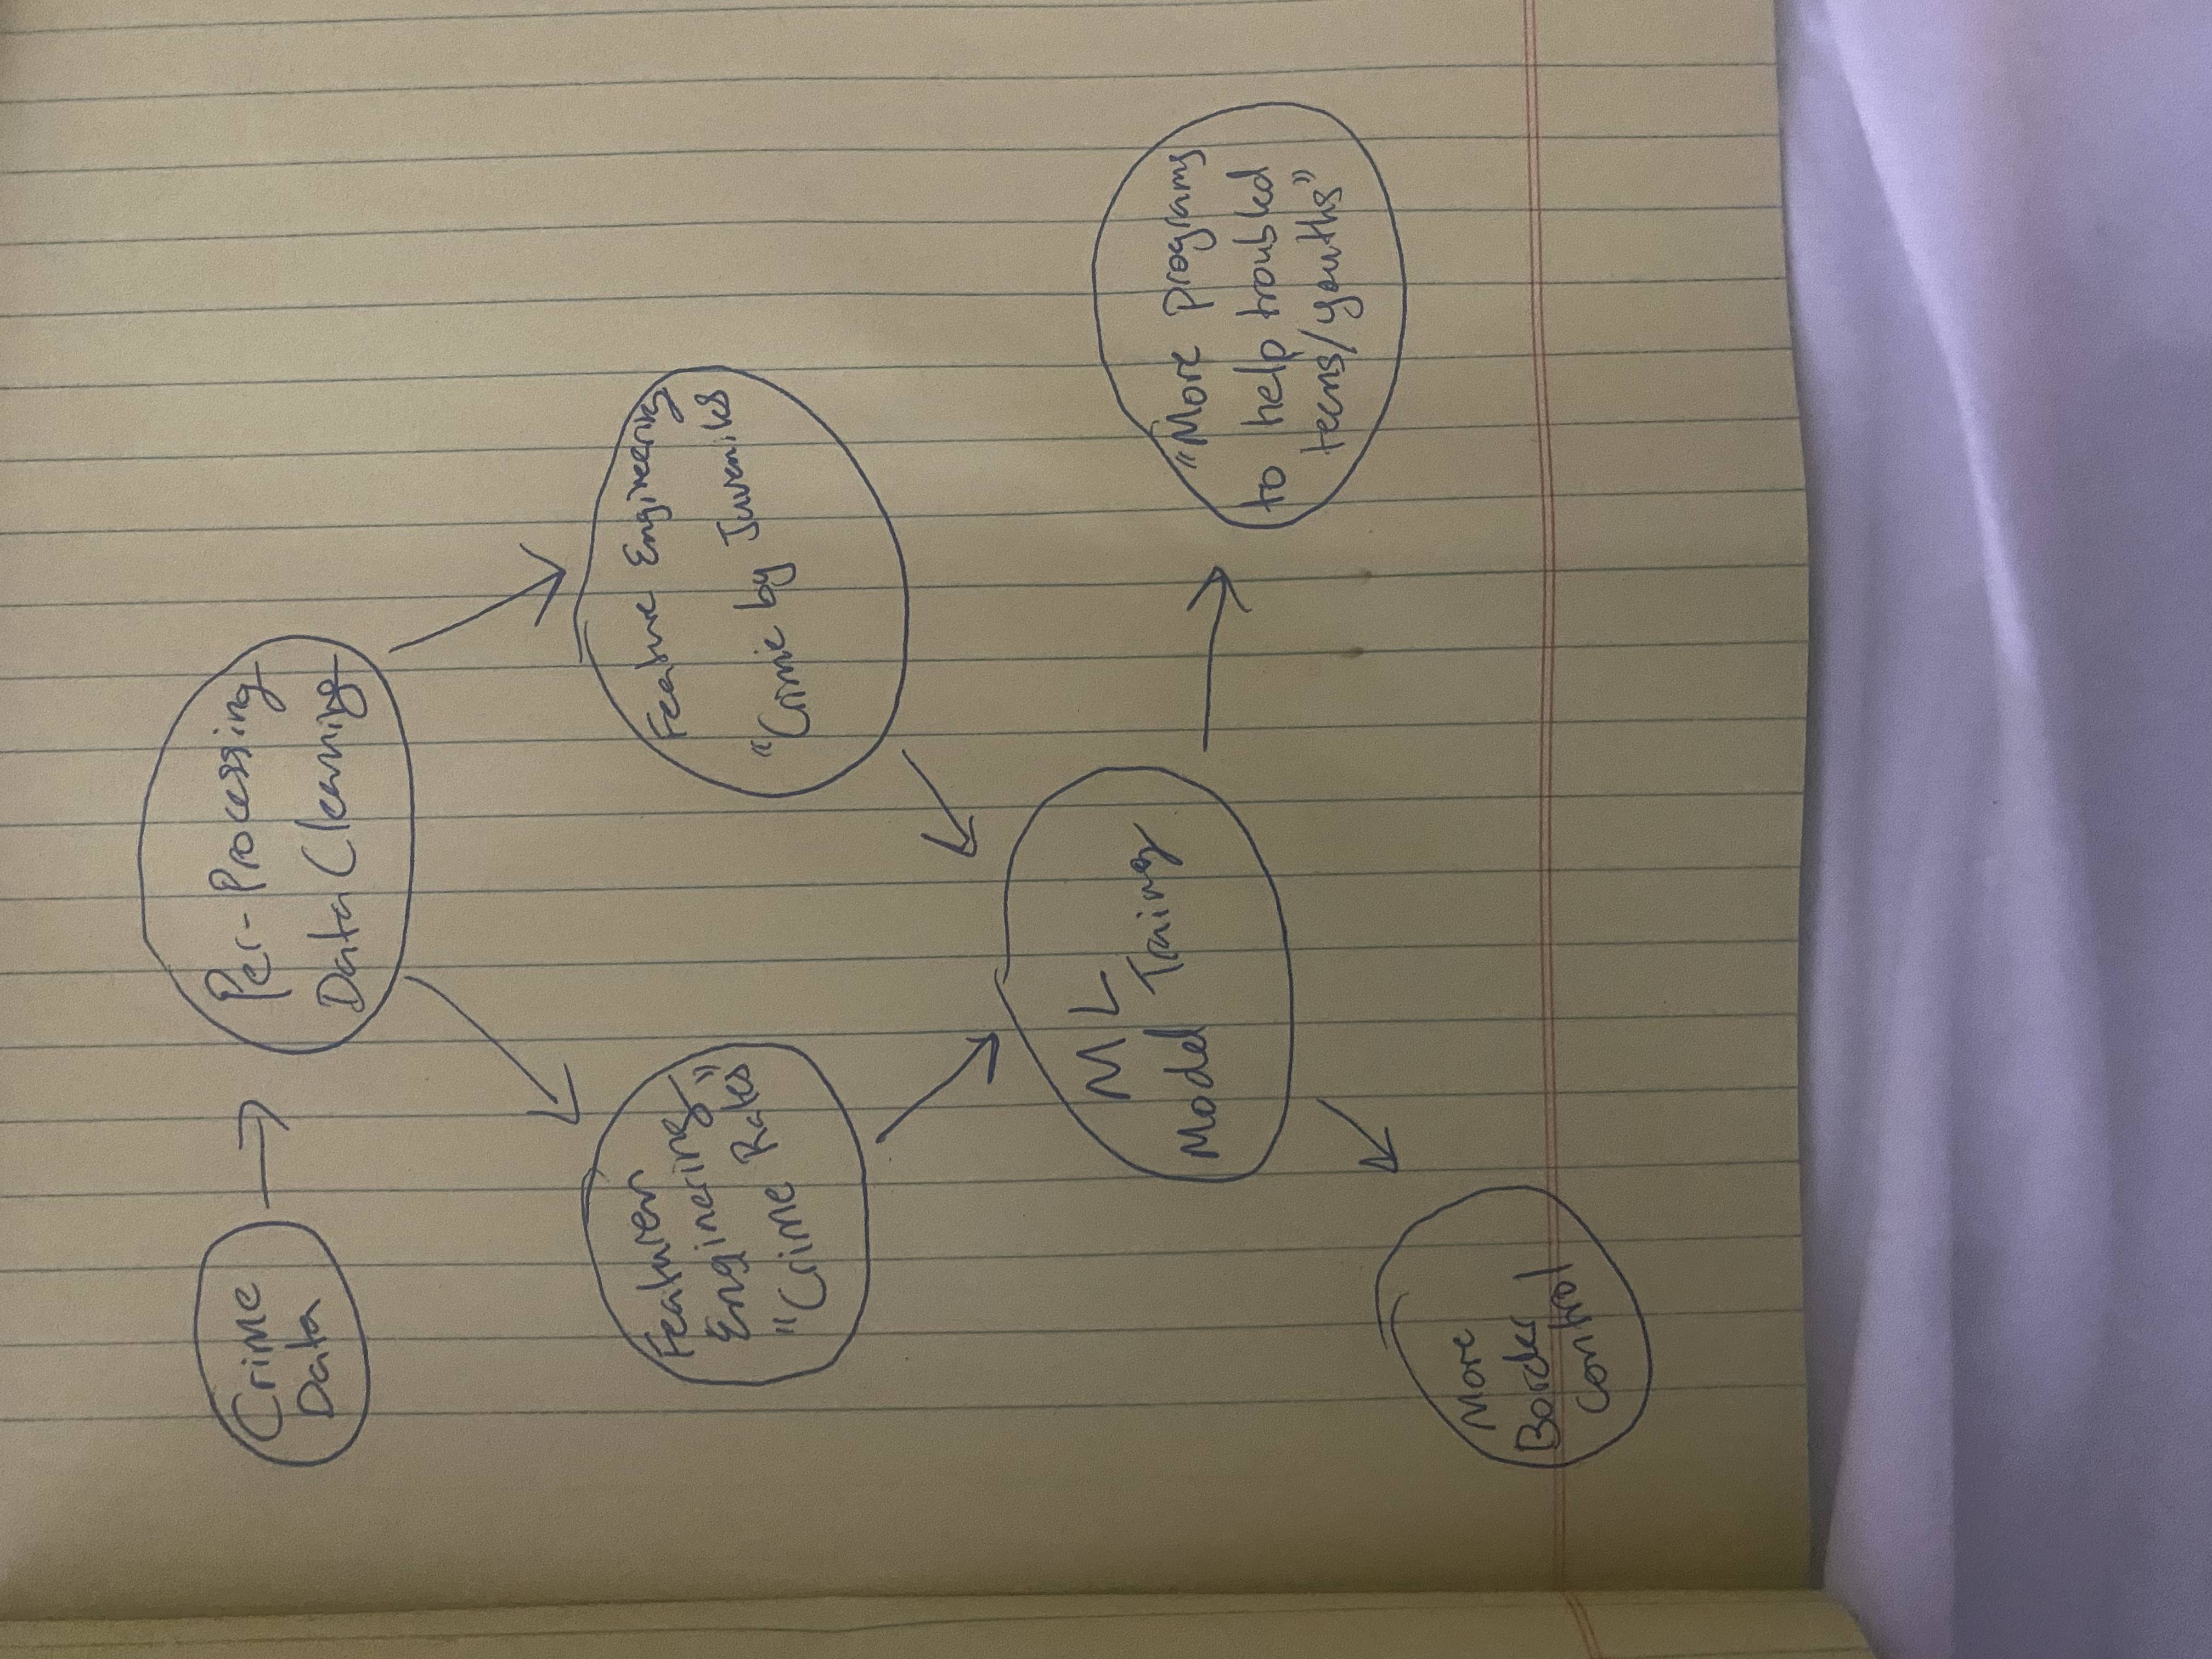 Crime
Data
Per-Processing
Data Cleaning
Featuren
Enginering
"Crime Rates"
Feature Engineering
"Crime by Juveniles
ML
Model Traing
"More programs
to help troubled
teens/youths"
More
Border
Control